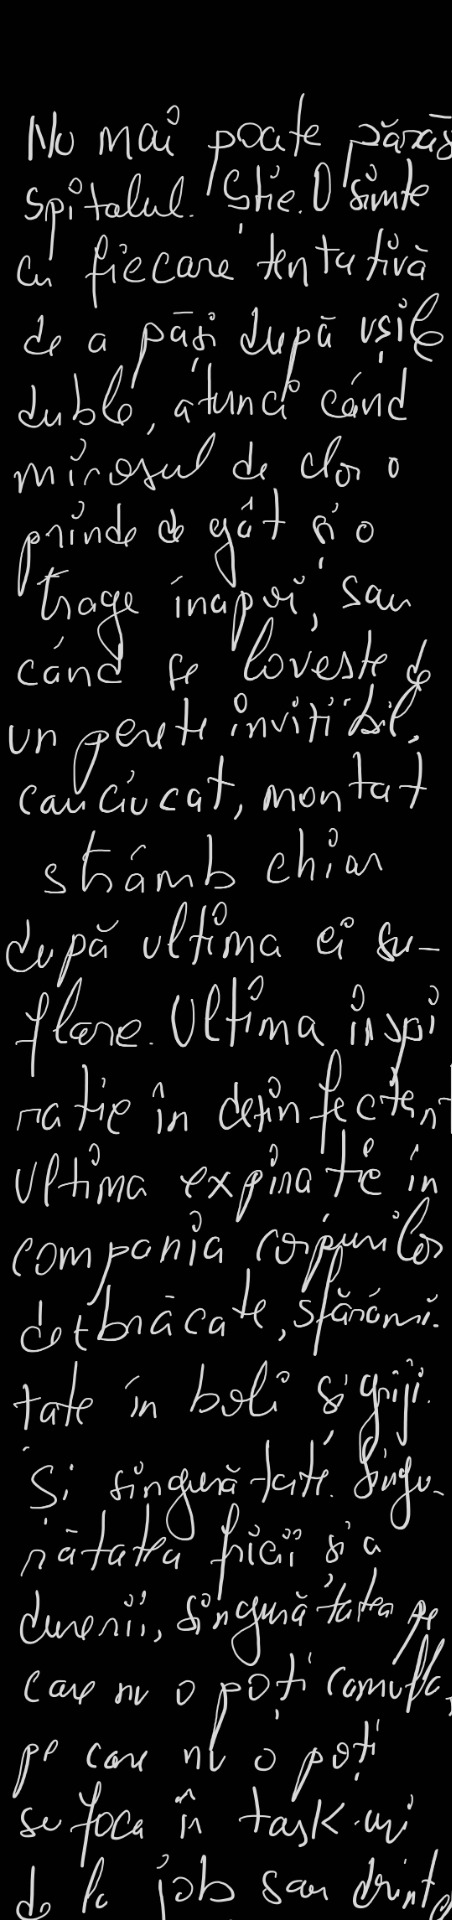 Nu mai poate părăs
spitalul. Știe. O simte
cu fiecare tentativă
de a păși după ușile
duble, atunci când
mirosul de clor o
prinde de gât și o
trage înapoi, sau
când se lovește de
un perete invizibil,
cauciucat, montat
strâmb chiar
după ultima ei su-
flare. Ultima inspi
rație în dezinfectant
ultima expirație în
compania corpurilor
dezbrăcate, sfărâmi-
tate în boli și griji.
Și singurătate. Singu-
rătatea fricii și a
durerii, singurătatea pe
care nu o poți camufla,
pe care nu o poți
sufoca în task-uri
de la job sau